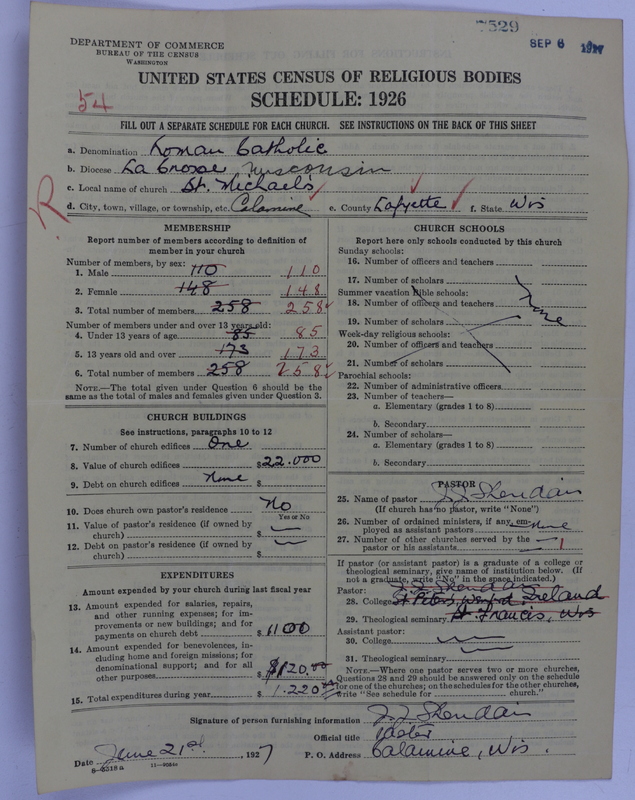 7529
SEP 6 1927
DEPARTMENT OF COMMERCE
BUREAU OF THE CENSUS
WASHINGTON
UNITED STATES CENSUS OF RELIGIOUS BODIES
SCHEDULE: 1926
54
FILL OUT A SEPARATE SCHEDULE FOR EACH CHURCH. SEE INSTRUCTIONS ON THE BACK OF THIS SHEET
a. Denomination Roman Catholic
b. Diocese La Crosse Wisconsin
c. Local name of church St. Michael's
R
d. City, town, village, or township, etc. Calamine e. County Lafyette f. State Wis
MEMBERSHIP
Report number of members according to definition of member in your church
Number of members, by sex:
1. Male 110 110
2. Female 148 148
3. Total number of members 258 258
Number of members under and over 13 years old:
4. Under 13 years of age 85 85
5. 13 years old and over 173 173
6. Total number of members 258 258
NOTE.—The total given under Question 6 should be the same as the total of males and females given under Question 3.
CHURCH BUILDINGS
See instructions, paragraphs 10 to 12
7. Number of church edifices One
8. Value of church edifices $22.000
9. Debt on church edifices None $
10. Does church own pastor's residence No
Yes or No
11. Value of pastor's residence (if owned by church) $
12. Debt on pastor's residence (if owned by church) $
EXPENDITURES
Amount expended by your church during last fiscal year
13. Amount expended for salaries, repairs, and other running expenses; for improvements or new buildings; and for payments on church debt $1100
14. Amount expended for benevolences, including home and foreign missions; for denominational support; and for all other purposes $120.00
15. Total expenditures during year $1.220
CHURCH SCHOOLS
Report here only schools conducted by this church
Sunday schools:
16. Number of officers and teachers
17. Number of scholars
Summer vacation Bible schools:
18. Number of officers and teachers None
19. Number of scholars
Week-day religious schools:
20. Number of officers and teachers
21. Number of scholars
Parochial schools:
22. Number of administrative officers
23. Number of teachers—
a. Elementary (grades 1 to 8)
b. Secondary
24. Number of scholars—
a. Elementary (grades 1 to 8)
b. Secondary
PASTOR
25. Name of pastor J. J. Sheridan
(If church has no pastor, write "None")
26. Number of ordained ministers, if any, employed as assistant pastors None
27. Number of other churches served by the pastor or his assistants 1
If pastor (or assistant pastor) is a graduate of a college or theological seminary, give name of institution below. (If not a graduate, write "No" in the space indicated.)
Pastor: J. J. Sheridan
28. College St Peters, Wexford, Ireland
29. Theological seminary St Francis, Wis
Assistant pastor:
30. College
31. Theological seminary
NOTE.—Where one pastor serves two or more churches, Questions 28 and 29 should be answered only on the schedule for one of the churches; on the schedules for the other churches, write "See schedule for church."
Signature of person furnishing information J. J. Sheridan
Official title Pastor
Date June 21st, 1927 P. O. Address Calamine, Wis.
6—3318a